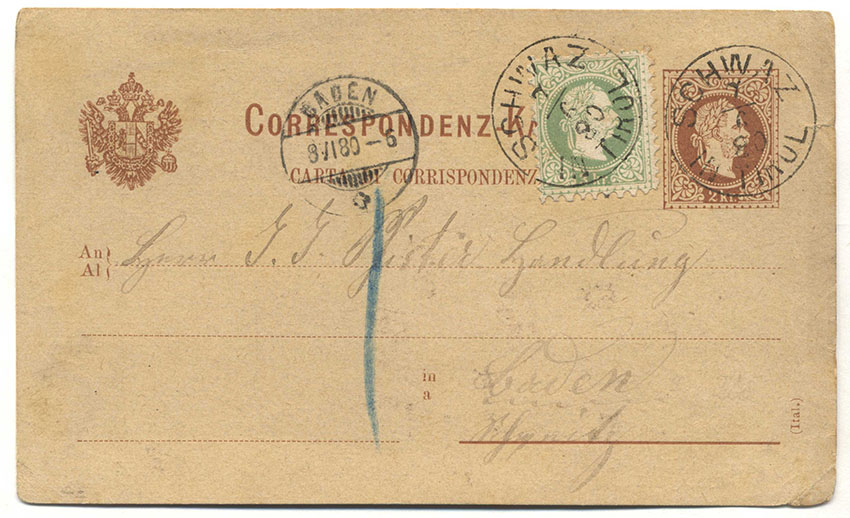 CORRESPONDENZ-KA
CARTA DI CORRISPONDENZ
BADEN
8 VI 80 – 6
SCHWAZ
TIROL
SCHWAZ
TIROL
2 KR
An
Al
Herrn J. J. Handlung
in
a
Baden
Schweitz
(Ital.)